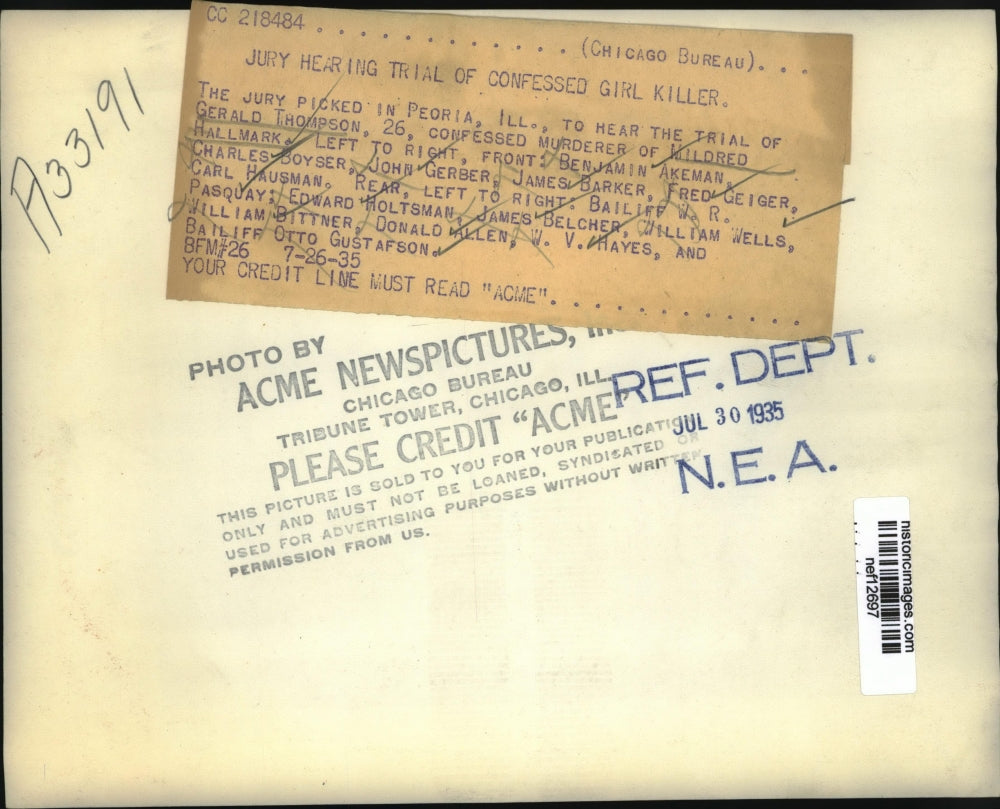 CC 218484 . . . . . . . . . . . . (CHICAGO BUREAU). . .
JURY HEARING TRIAL OF CONFESSED GIRL KILLER.
THE JURY PICKED IN PEORIA, ILL., TO HEAR THE TRIAL OF
GERALD THOMPSON, 26, CONFESSED MURDERER OF MILDRED
HALLMARK. LEFT TO RIGHT, FRONT: BENJAMIN AKEMAN,
CHARLES BOYSER, JOHN GERBER, JAMES BARKER, FRED GEIGER,
CARL HAUSMAN. REAR, LEFT TO RIGHT: BAILIFF W. R.
PASQUAY, EDWARD HOLTSMAN, JAMES BELCHER, WILLIAM WELLS,
WILLIAM BITTNER, DONALD ALLEN, W. V. HAYES, AND
BAILIFF OTTO GUSTAFSON.
BFM#26 7-26-35
YOUR CREDIT LINE MUST READ "ACME". . . . . . . . . . .
A33191
PHOTO BY
ACME NEWSPICTURES,
CHICAGO BUREAU
TRIBUNE TOWER, CHICAGO, ILL.
PLEASE CREDIT "ACME"
THIS PICTURE IS SOLD TO YOU FOR YOUR PUBLICATION
ONLY AND MUST NOT BE LOANED, SYNDICATED OR
USED FOR ADVERTISING PURPOSES WITHOUT WRITTEN
PERMISSION FROM US.
REF. DEPT.
JUL 30 1935
N. E. A.
historicimages.com
nef12697